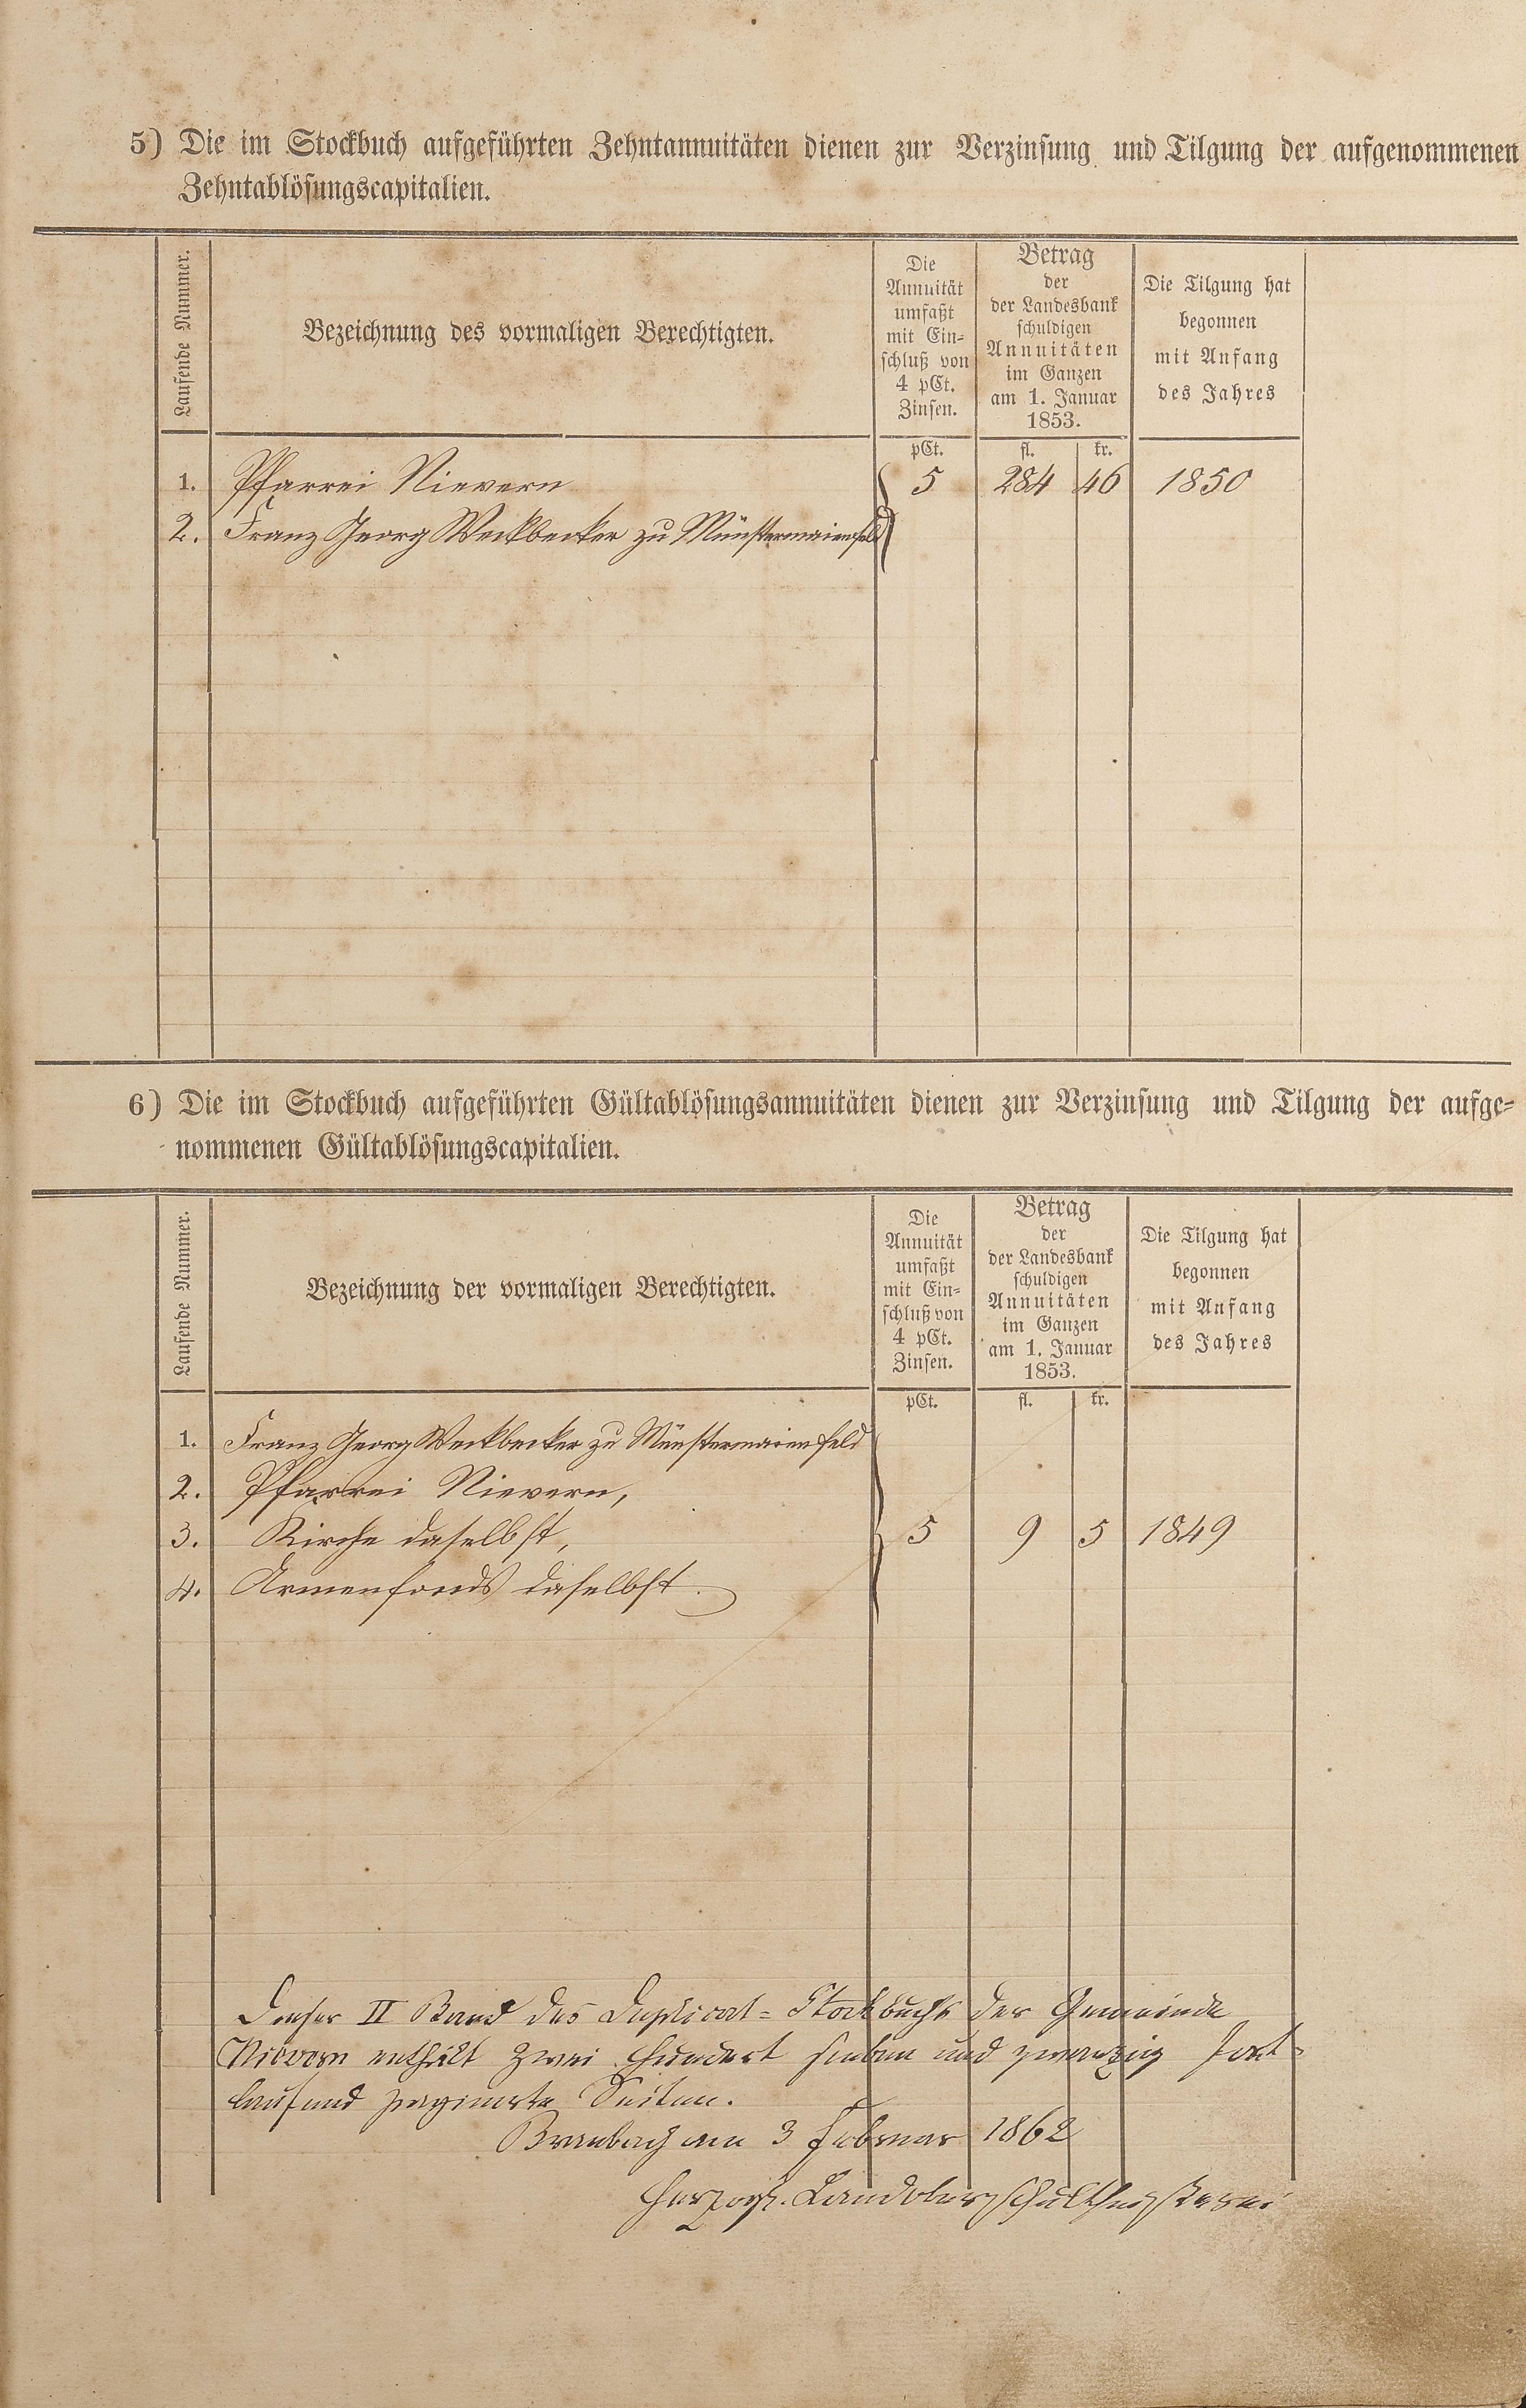 5) Die im Stockbuch aufgeführten Zehntannuitäten dienen zur Verzinsung und Tilgung der aufgenommenen
Zehntablösungscapitalien.
Laufende Nummer.
Bezeichnung des vormaligen Berechtigten.
Die
Annuität
umfaßt
mit Ein-
schluß von
4 pCt.
Zinsen.
Betrag
der
der Landesbank
schuldigen
Annuitäten
im Ganzen
am 1. Januar
1853.
Die Tilgung hat
begonnen
mit Anfang
des Jahres
pCt. fl. kr.
1. Pfarrei Nievern 5 284 46 1850
2. Franz Georg Weckbecker zu Münstermaienfeld
6) Die im Stockbuch aufgeführten Gültablösungsannuitäten dienen zur Verzinsung und Tilgung der aufge-
nommenen Gültablösungscapitalien.
Laufende Nummer.
Bezeichnung der vormaligen Berechtigten.
Die
Annuität
umfaßt
mit Ein-
schluß von
4 pCt.
Zinsen.
Betrag
der
der Landesbank
schuldigen
Annuitäten
im Ganzen
am 1. Januar
1853.
Die Tilgung hat
begonnen
mit Anfang
des Jahres
pCt. fl. kr.
1. Franz Georg Weckbecker zu Münstermaienfeld
2. Pfarrei Nievern,
3. Kirche daselbst, 5 9 5 1849
4. Armenfonds daselbst.
Dieser II Band des Duplicat-Stockbuchs der Gemeinde
Nievern enthält zwei hundert sieben und zwanzig fort-
laufend paginirte Seiten.
Braubach am 3 Februar 1862
Herzogl. Landoberschultheisserei